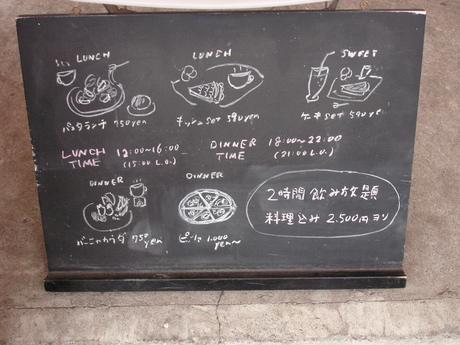 LUNCH
LUNCH
SWEET
パスタランチ 750yen
キッシュSET 590yen
ケーキSET 590yen
LUNCH TIME 12:00~16:00 (15:00 L.O.)
DINNER TIME 18:00~22:00 (21:00 L.O.)
DINNER
DINNER
バーニャカウダ 750yen
ピザ 1.000yen~
2時間飲み放題
料理込み 2.500円ヨリ